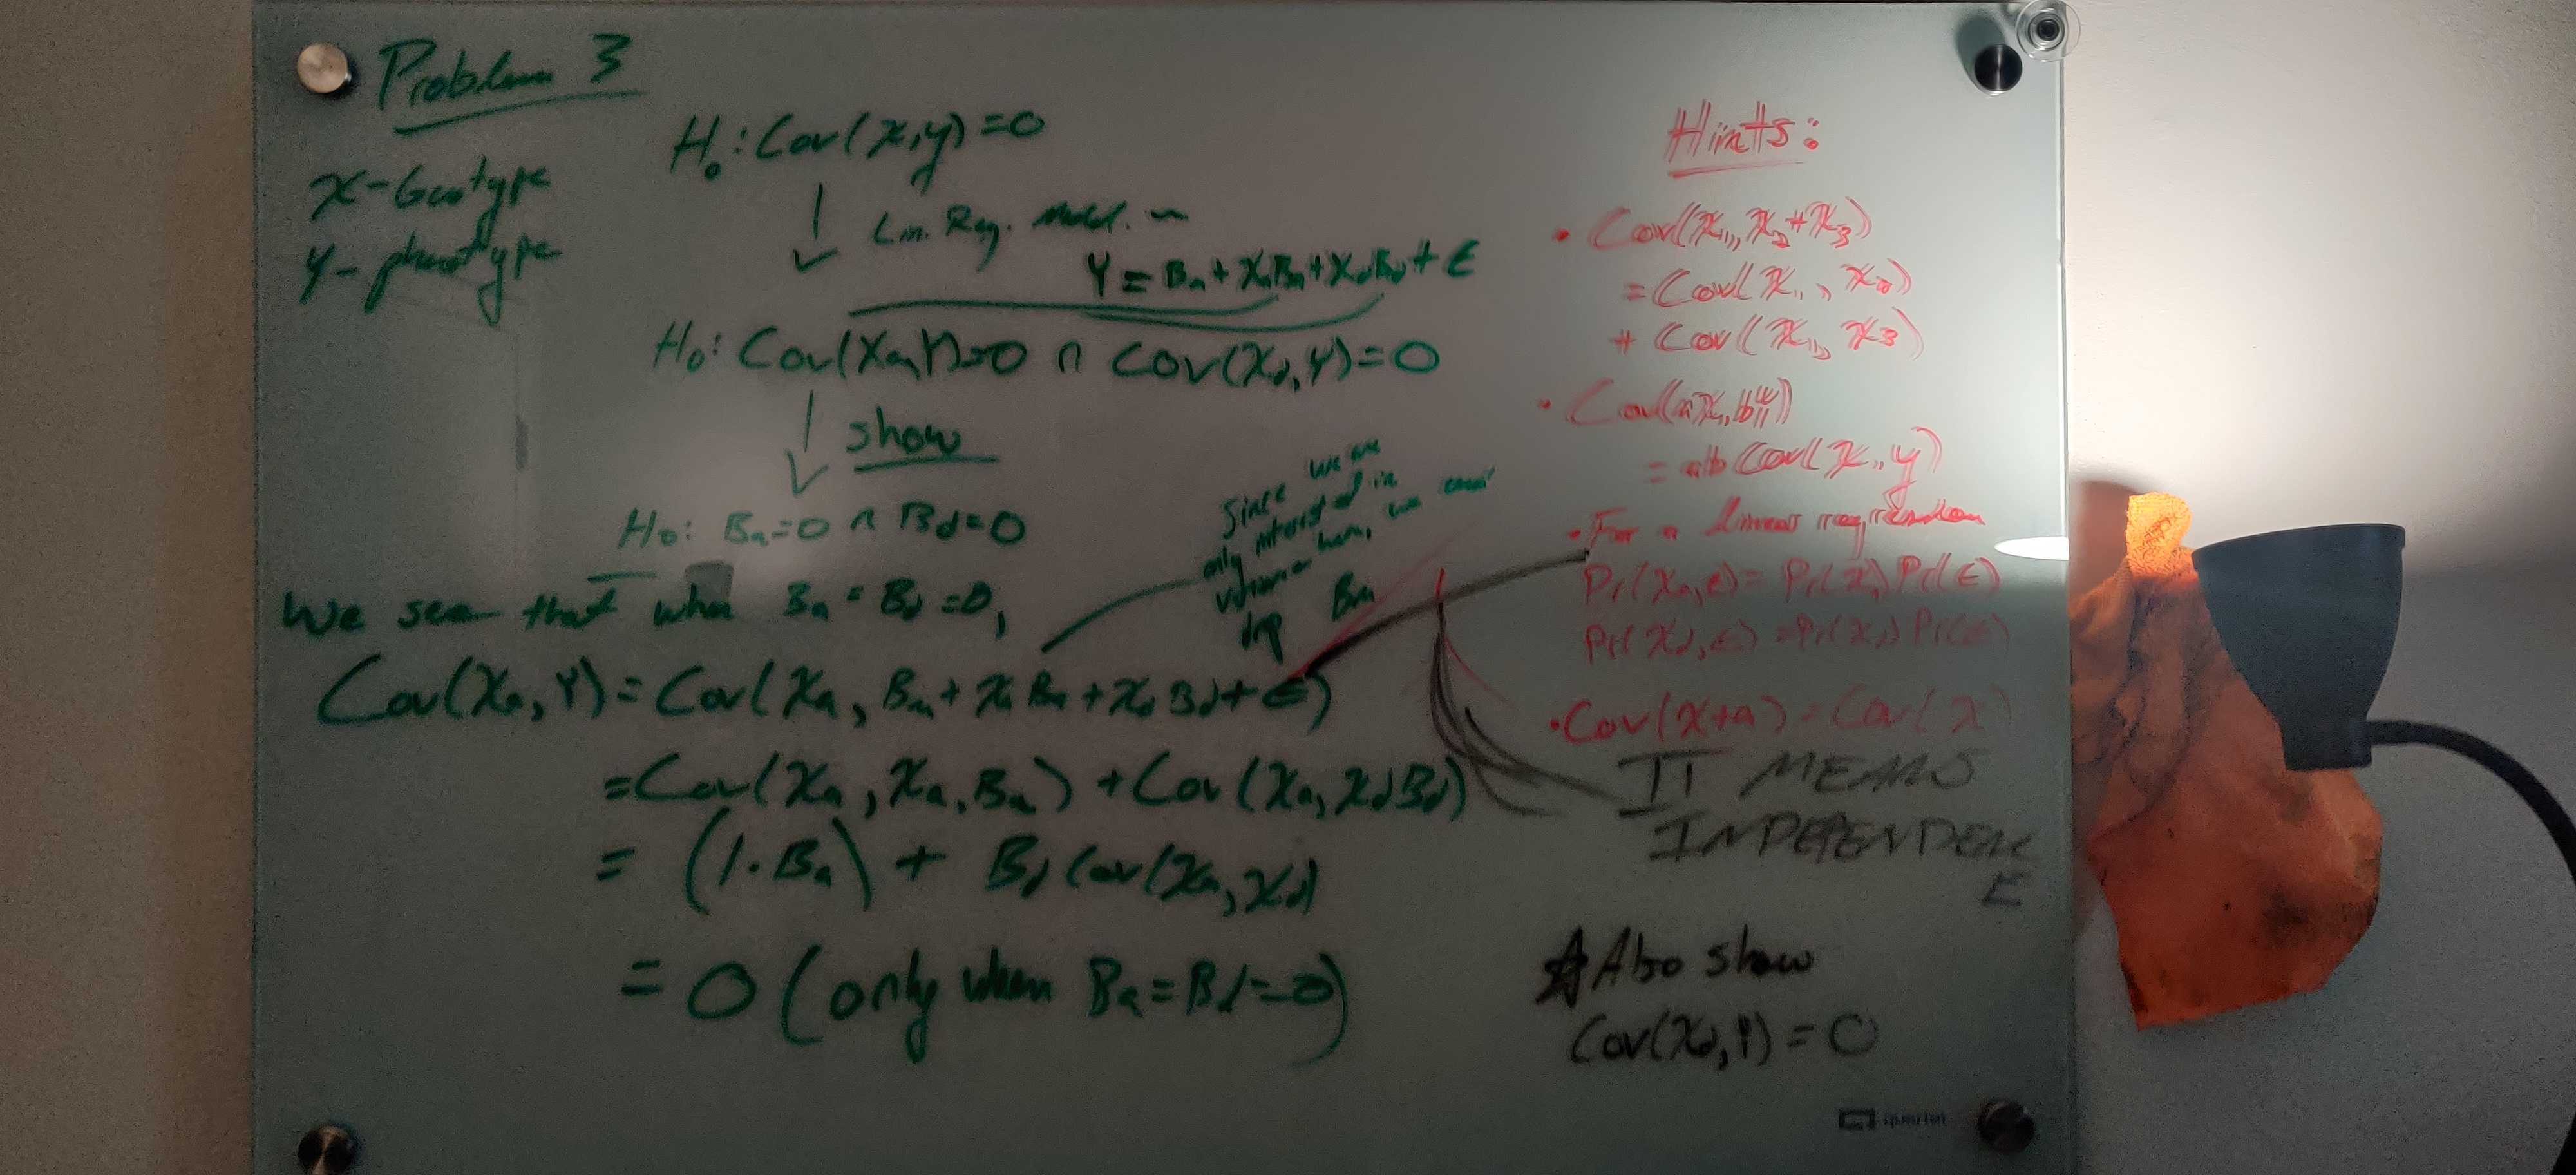 Problem 3
X-Genotype
Y-phenotype
H₀: Cov(X,y)=0
Lin. Reg. Model.
Y = Bₐ + XₐBₐ + X_dB_d + ε
H₀: Cov(Xₐ,Y)=0 ∩ Cov(X_d,Y)=0
show
H₀: Bₐ=0 ∩ B_d=0
We see that when Bₐ = B_d = 0,
Since we are
only interested in
variance here, we can
drop Bₘ
Cov(Xₐ,Y) = Cov(Xₐ, Bₘ + XₐBₐ + X_dB_d + ε)
= Cov(Xₐ, Xₐ.Bₐ) + Cov(Xₐ, X_dB_d)
= (1·Bₐ) + B_d Cov(Xₐ, X_d)
= 0 (only when Bₐ = B_d = 0)
Hints:
• Cov(X₁, X₂+X₃)
= Cov(X₁, X₂)
+ Cov(X₁, X₃)
• Cov(aX, by)
= ab Cov(X, y)
• For a linear regression
Pr(Xₐ,ε) = Pr(Xₐ)Pr(ε)
Pr(X_d,ε) = Pr(X_d)Pr(ε)
• Cov(X+a) = Cov(X)
IT MEANS
INDEPENDENC
E
☆ Also show
Cov(X_d,Y) = 0
Quartet